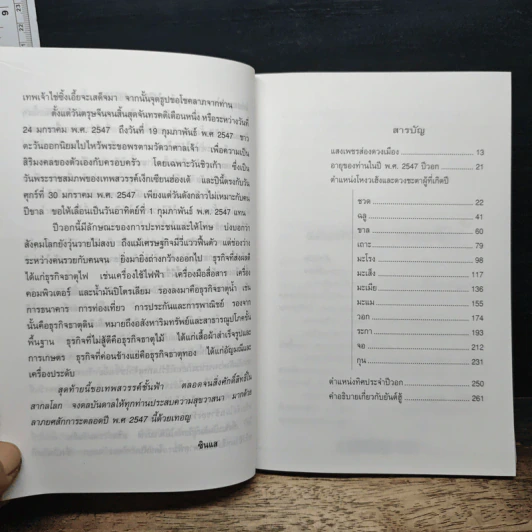 เทพเจ้าไช่ซิ้งเอี้ยจะเสด็จมา จากนั้นจุดธูปขอโชคลาภจากท่าน
ตั้งแต่วันตรุษจีนจนสิ้นสุดจันทรคติเดือนหนึ่ง หรือระหว่างวันที่
24 มกราคม พ.ศ. 2547 ถึงวันที่ 19 กุมภาพันธ์ พ.ศ 2547 ชาว
ตะวันออกนิยมไปไหว้พระขอพรตามวัดวาศาลเจ้า เพื่อความเป็น
สิริมงคลของตัวเองกับครอบครัว โดยเฉพาะวันชิวเก้า ซึ่งเป็น
วันพระราชสมภพของเทพสวรรค์เง็กเซียนฮ่องเต้ และปีนี้ตรงกับวัน
ศุกร์ที่ 30 มกราคม พ.ศ. 2547 เพียงแต่วันดังกล่าวไม่เหมาะกับคน
ปีขาล ขอให้เลื่อนเป็นวันอาทิตย์ที่ 1 กุมภาพันธ์ พ.ศ. 2547 แทน
ปีวอกนี้มีลักษณะของการปะทะชนและให้โทษ บ่งบอกว่า
สังคมโลกยังวุ่นวายไม่สงบ ถึงแม้เศรษฐกิจมีวี่แววฟื้นตัว แต่ช่องว่าง
ระหว่างคนรวยกับคนจน ยิ่งมายิ่งถ่างกว้างออกไป ธุรกิจที่ส่งผลดี
ได้แก่ธุรกิจธาตุไฟ เช่นเครื่องใช้ไฟฟ้า เครื่องมือสื่อสาร เครื่อง
คอมพิวเตอร์ และน้ำมันปิโตรเลียม รองลงมาคือธุรกิจธาตุน้ำ เช่น
การธนาคาร การท่องเที่ยว การประกันและการพาณิชย์ รองจาก
นั้นคือธุรกิจธาตุดิน หมายถึงอสังหาริมทรัพย์และสาธารณูปโภคขั้น
พื้นฐาน ธุรกิจที่ไม่สู้ดีคือธุรกิจธาตุไม้ ได้แก่เสื้อผ้าสำเร็จรูปและ
การเกษตร ธุรกิจที่ค่อนข้างแย่คือธุรกิจธาตุทอง ได้แก่อัญมณีและ
เครื่องประดับ
สุดท้ายนี้ขอเทพสวรรค์ชั้นฟ้า ตลอดจนสิ่งศักดิ์สิทธิ์ใน
สากลโลก จงดลบันดาลให้ทุกท่านประสบความสุขวาสนา มากด้วย
ลาภยศสักการะตลอดปี พ.ศ 2547 นี้ด้วยเทอญ
ซินแส
สารบัญ
แสงเพชรส่องดวงเมือง 13
อายุของท่านในปี พ.ศ. 2547 ปีวอก 21
ตำแหน่งโหงวเฮ้งและดวงชะตาผู้ที่เกิดปี
ชวด 22
ฉลู 41
ขาล 60
เถาะ 79
มะโรง 98
มะเส็ง 117
มะเมีย 136
มะแม 155
วอก 174
ระกา 193
จอ 212
กุน 231
ตำแหน่งทิศประจำปีวอก 250
คำอธิบายเกี่ยวกับยันต์ฮู้ 261